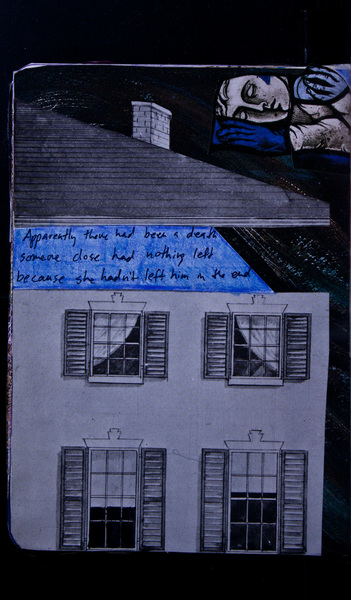 Apparently there had been a death
someone close had nothing left
because she hadn't left him in the end